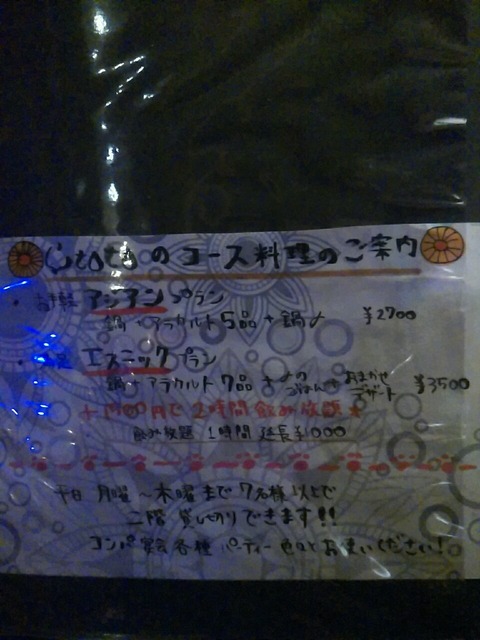 のコース料理のご案内
お手軽 アジアンプラン
鍋+アラカルト5品+鍋〆 ¥2700
エスニックプラン
鍋+アラカルト7品+〆のごはん+おまかせデザート ¥3500
円で2時間飲み放題
飲み放題 1時間 延長¥1000
平日 月曜～木曜まで7名様以上で
二階 貸し切りできます!!
コンパ宴会各種パーティー色々とお使いください!